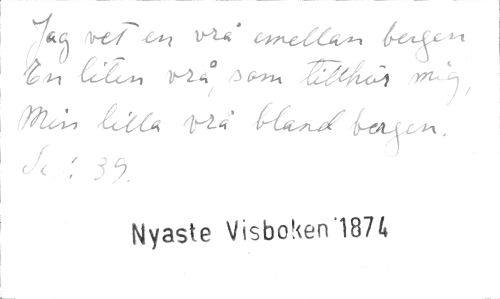 Jag vet en vrå emellan bergen
En liten vrå, som tillhör mig,
Min lilla vrå bland bergen.
39.
Nyaste Visboken 1874